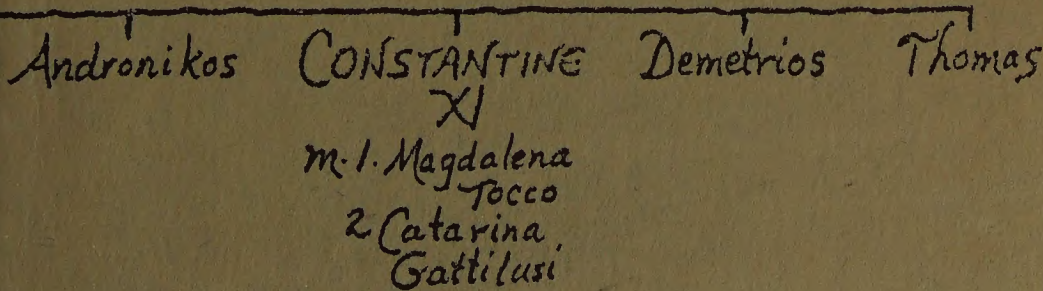 Andronikos CONSTANTINE Demetrios Thomas
XI
m. 1. Magdalena
Tocco
2 Catarina
Gattilusi